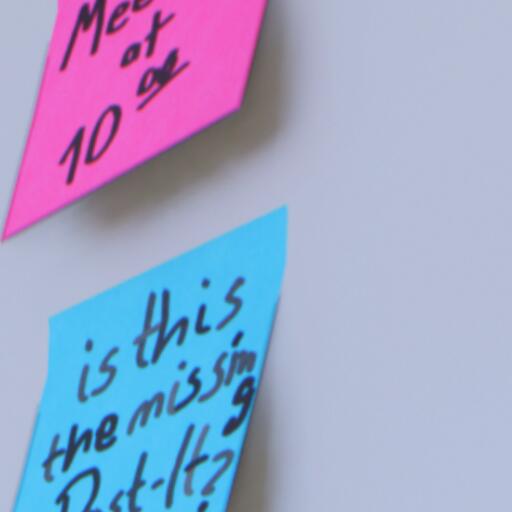 Mee
at
10 00
is this
the missing
Post-It?